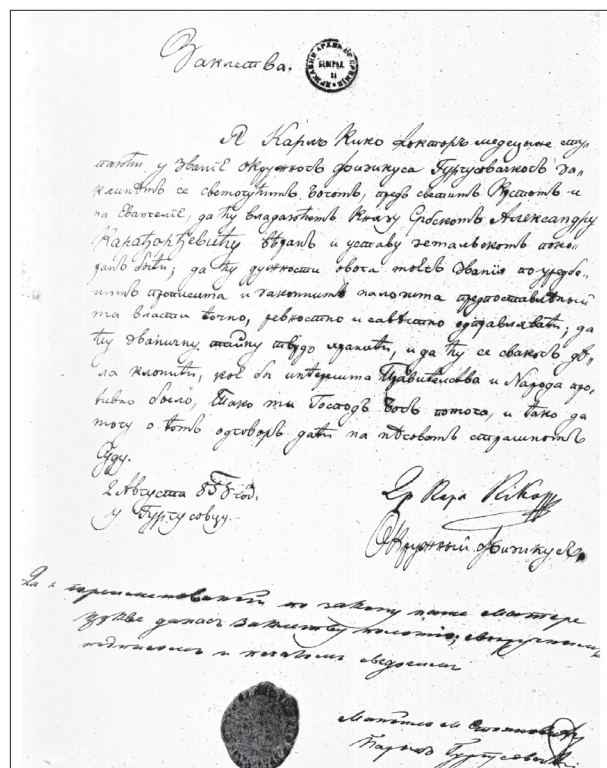 Заклетва.
ДРЖАВНИ АРХИВ НР СРБИЈЕ
БЕОГРАД
Я Карлъ Кико Докторъ медецыне сту
паюћи у Званіє окружногъ физикуса Гургусовачкогъ за
клинѣмъ се свемогућимъ Богомъ, предъ светимъ Крстомъ и
на Евангелію, да ћу владаюћемъ Князу Србскомъ Александру
Карађорђевићу вѣранъ и уставу земальскомъ поко
ранъ быти; да ћу дужности овога мога Званія по уредбе
нимъ прописима и законимъ налозима предпоставлѣный
ма власти точно, ревностно и савѣстно одправляти; да
ћу званичну тайну тврдо хранити, и да ћу се свакогъ дѣ
ла клонити, коє бы интересима Правителства и Народа про
тивно было, Тако ми Господь Богъ помога, и тако да
могу о томъ одговоръ дати на нѣговомъ страшномъ
Суду.
2 Августа 858 год.
у Гургусовцу.
Др Карл Кико
Окружный Физикусъ
Да є преименованый по закону наше Матере
цркве данасъ заклетву положіо, своеручнимъ
подписомъ и печатомъ сведочимъ
Парохъ Гургусовачкій